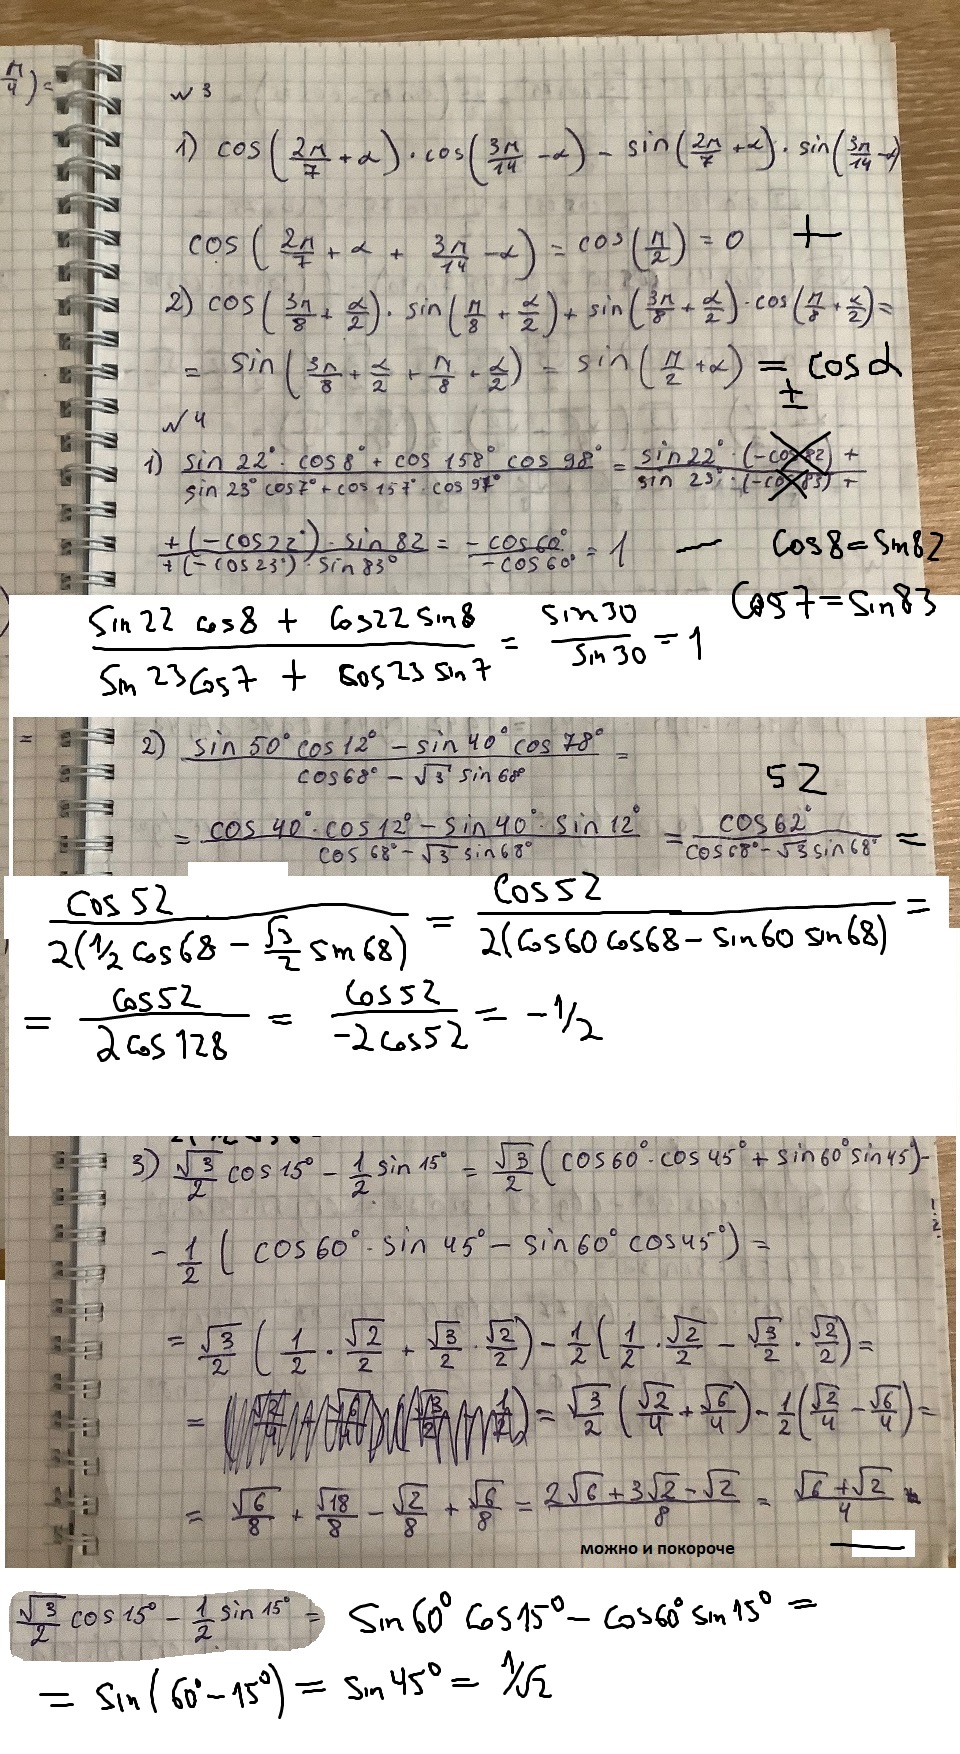 π/4) =
№3
1) cos(2π/7 + α) · cos(3π/14 − α) − sin(2π/7 + α) · sin(3π/14 − α)
cos(2π/7 + α + 3π/14 − α) = cos(π/2) = 0 +
2) cos(3π/8 + α/2) · sin(π/8 + α/2) + sin(3π/8 + α/2) · cos(π/8 + α/2) =
= sin(3π/8 + α/2 + π/8 + α/2) = sin(π/2 + α) = cosα
±
№4
1) (sin 22° · cos 8° + cos 158° cos 98°)/(sin 23° cos 7° + cos 157° · cos 97°) = (sin 22° · (−cos 82) +)/(sin 23° · (−cos 83) +)
(+(−cos 22°) · sin 82)/(+(−cos 23°) · sin 83°) = (−cos 60°)/(−cos 60°) = 1 — cos8 = sin82
cos7 = sin83
(sin22 cos8 + cos22 sin8)/(sin23 cos7 + cos23 sin7) = sin30/sin30 = 1
=
2) (sin 50° cos 12° − sin 40° cos 78°)/(cos 68° − √3 sin 68°) =
52
= (cos 40° · cos 12° − sin 40° · sin 12°)/(cos 68° − √3 sin 68°) = cos 62°/(cos 68° − √3 sin 68°) =
cos52/(2(1/2 cos68 − √3/2 sin68)) = cos52/(2(cos60 cos68 − sin60 sin68)) =
= cos52/(2cos128) = cos52/(−2cos52) = −1/2
3) √3/2 cos 15° − 1/2 sin 15° = √3/2 (cos 60° · cos 45° + sin 60° sin 45°) −
− 1/2 (cos 60° · sin 45° − sin 60° cos 45°) =
= √3/2 (1/2 · √2/2 + √3/2 · √2/2) − 1/2 (1/2 · √2/2 − √3/2 · √2/2) =
= = √3/2 (√2/4 + √6/4) − 1/2 (√2/4 − √6/4) =
= √6/8 + √18/8 − √2/8 + √6/8 = (2√6 + 3√2 − √2)/8 = (√6 + √2)/4
можно и покороче
√3/2 cos 15° − 1/2 sin 15° = sin60° cos15° − cos60° sin15° =
= sin(60° − 15°) = sin45° = 1/√2